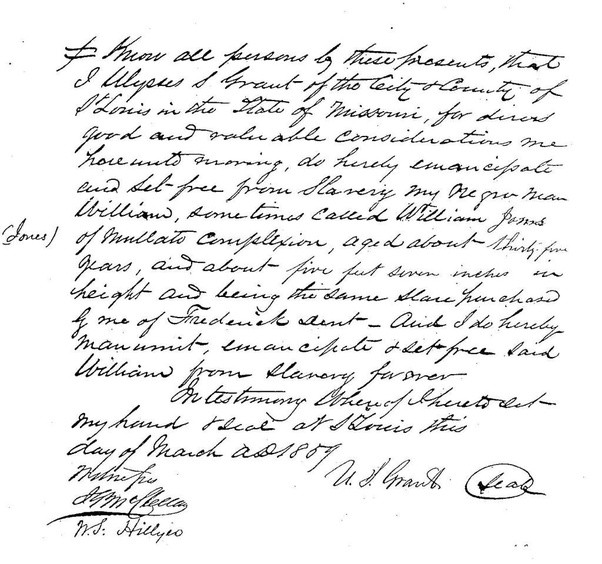 Know all persons by these presents, that
I Ulysses S Grant of the City & County of
St Louis in the State of Missouri, for divers
good and valuable considerations me
hereunto moving, do hereby emancipate
and set free from Slavery my Negro man
William, sometimes called William Jones
(Jones)
of Mullato complexion, aged about thirty-five
years, and about five feet seven inches in
height and being the same slave purchased
by me of Frederick Dent - And I do hereby
manumit, emancipate & set free said
William from slavery forever
In testimony Whereof I hereto set
my hand & seal at St Louis this
day of March AD 1859
U. S. Grant Seal
Witnesses
J G McClellan
W. S. Hillyer